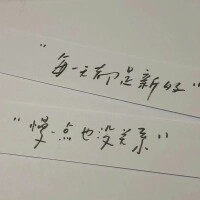 “每一天都是新的”
“慢一点也没关系”